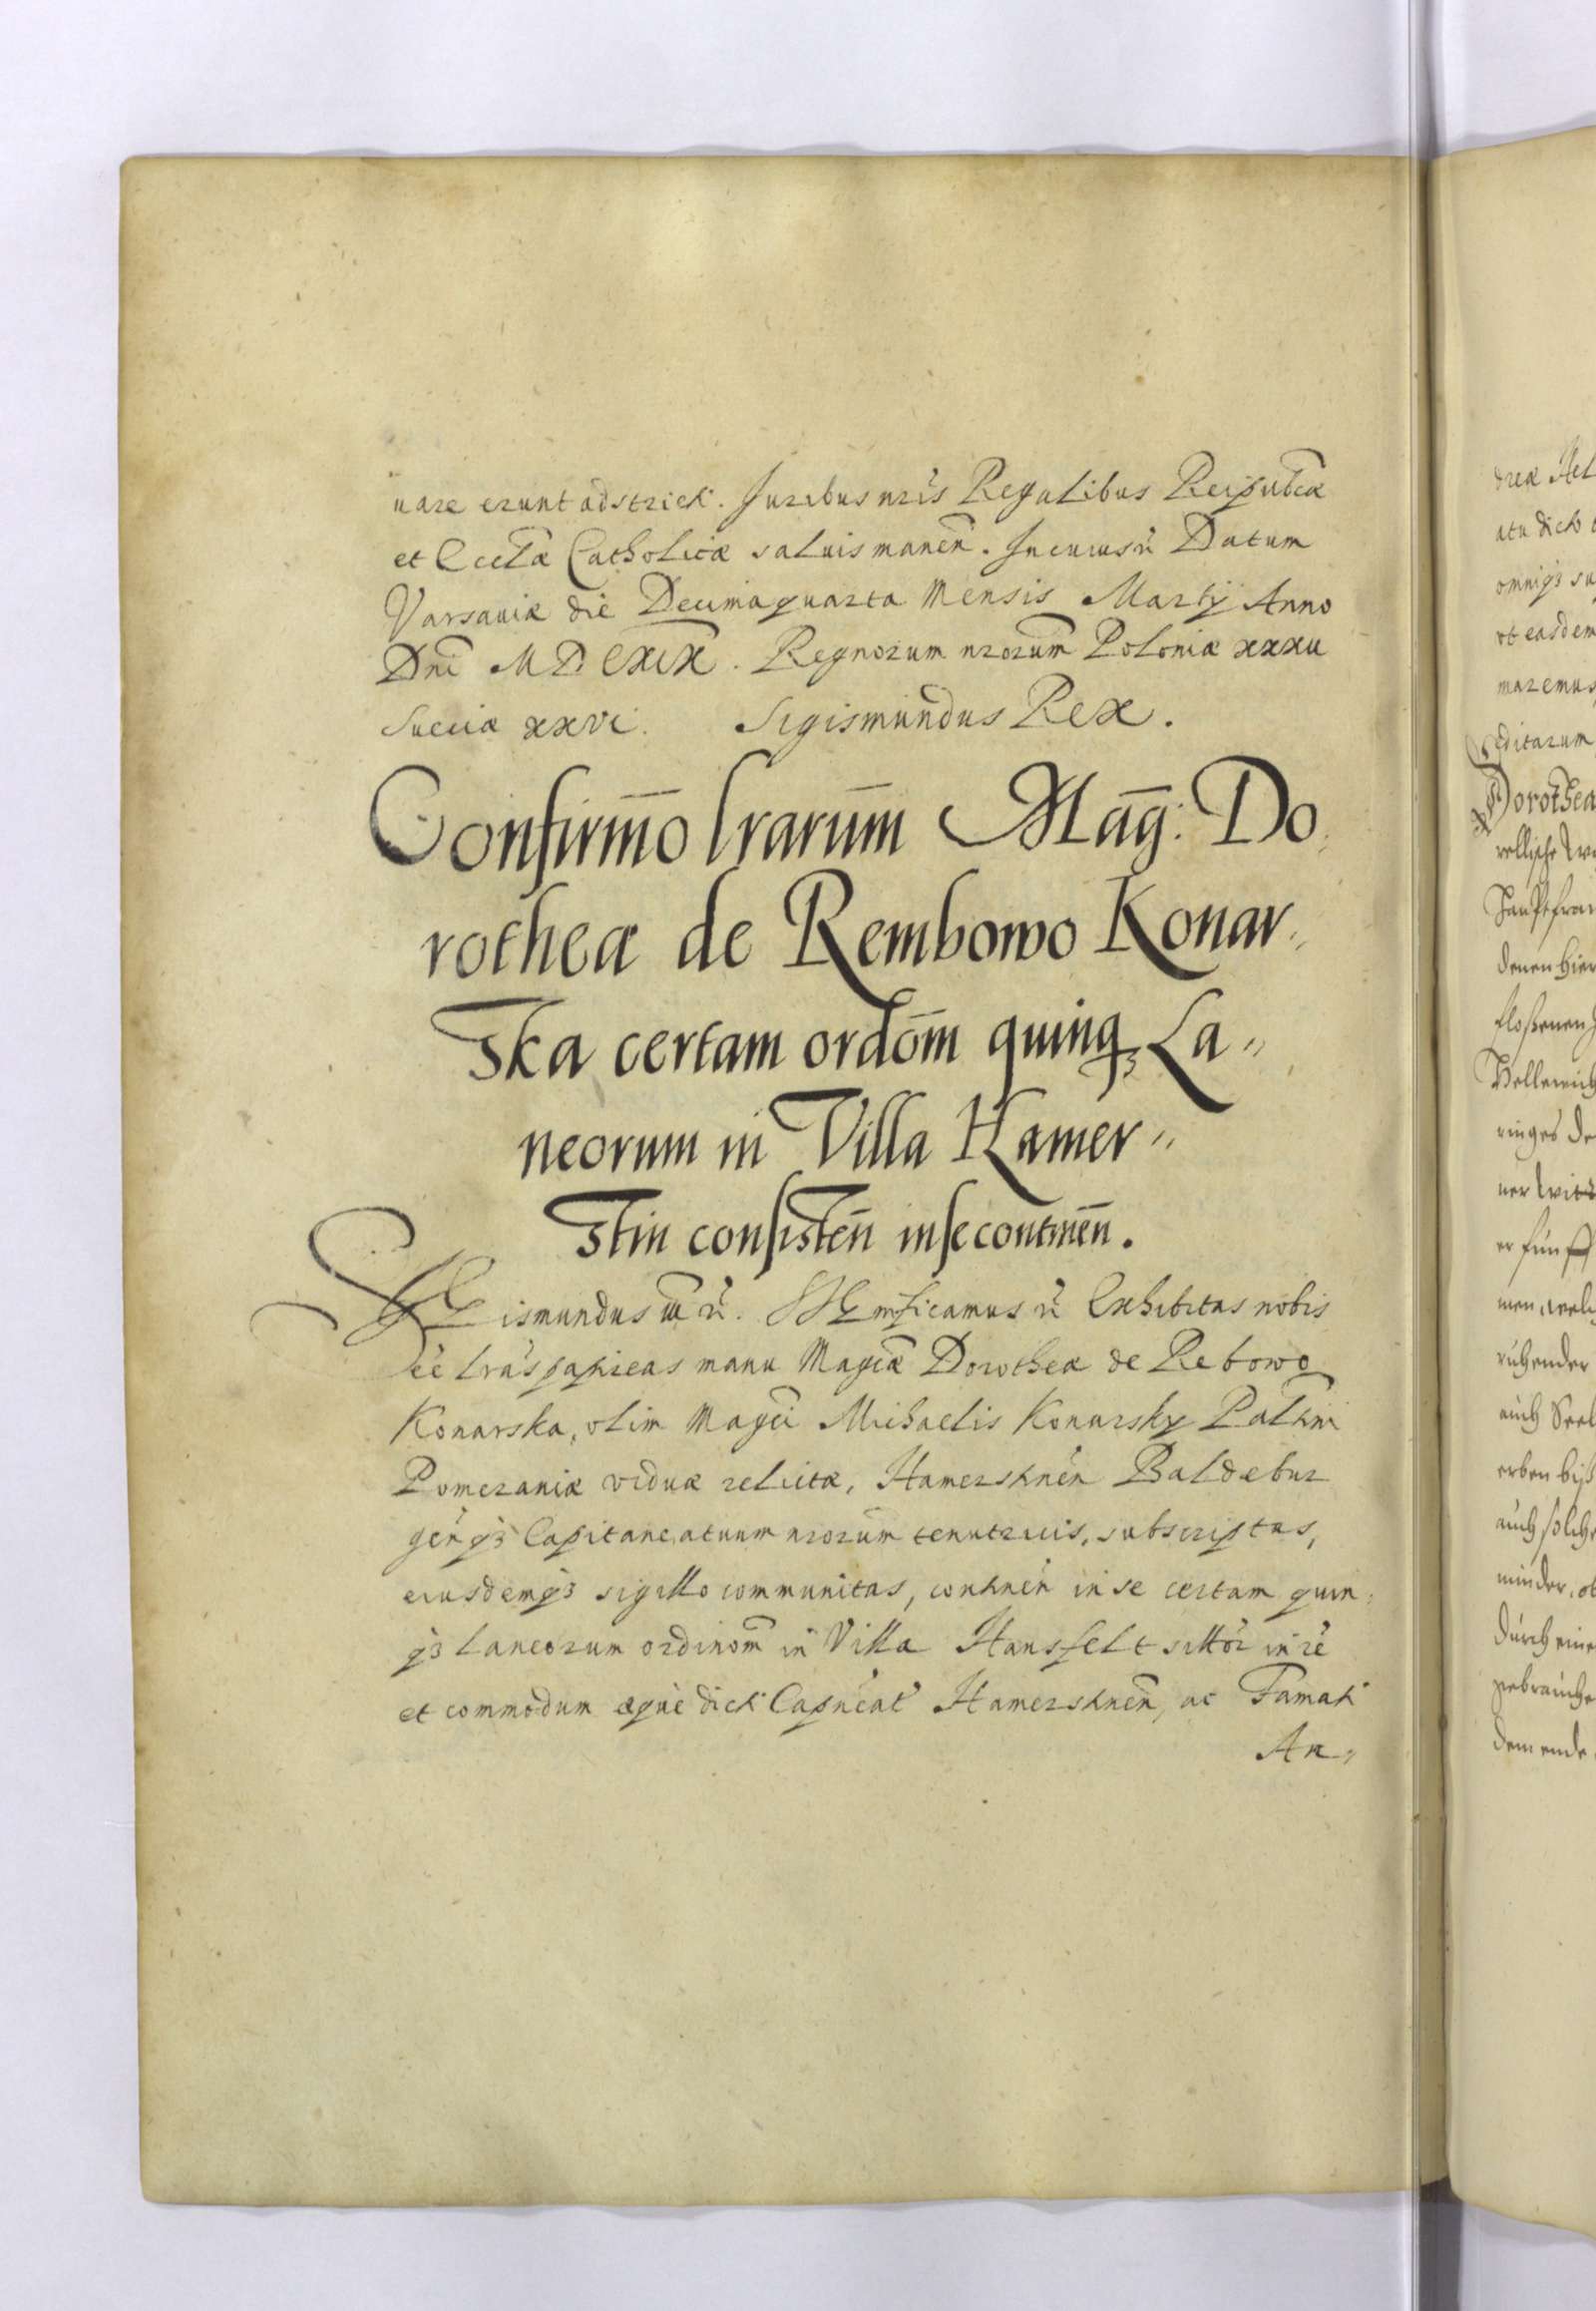 uare erunt adstricti. Juribus nr̃is Regalibus Reipubcæ
et Eccl̃æ Catholicæ saluis manen̄. In cuius r̃ Datum
Varsauiæ die Decimaquarta Mensis Martÿ Anno
Dni MDCXIX. Regnorum nrorum Poloniæ xxxii
Sueciæ xxvi. Sigismundus Rex.
Confirm̄o lrarūm Māg: Do,
rotheæ de Rembowo Konar,,
Ska certam ordōm quinq₃ La,,
neorum in Villa Hamer,,
Stin consisten̄ in se contineñ.
Sigismundus iii r̃. Significamus r̃ Exhibitas nobis
ẽe lrãs papireas manu Magcæ Dorotheæ de Rebowo
Konarska, olim Magci Michaelis Konarsky Paltini
Pomeraniæ viduæ relictæ, Hamerstinẽn Baldebur
gen̄ q₃ Capitaneatuum nrorum tenutricis, subscriptas,
eiusdemq₃ sigillo communitas, continẽn in se certam quin,
q₃ laneorum ordinom in Villa Hansfelt sittor in rẽ
et commodum æque dicti Capneat̃ Hamerstinen̄, ac Famati
An,,
dreæ Hel
atu dicto
omniq₃ su
vt easdem
maremus
editarum
Dorothea
denen hier
ringes de
ruhender
auch Seel
erben biß
auch solche
minder, ob
durch eine
gebrauche
dem ende